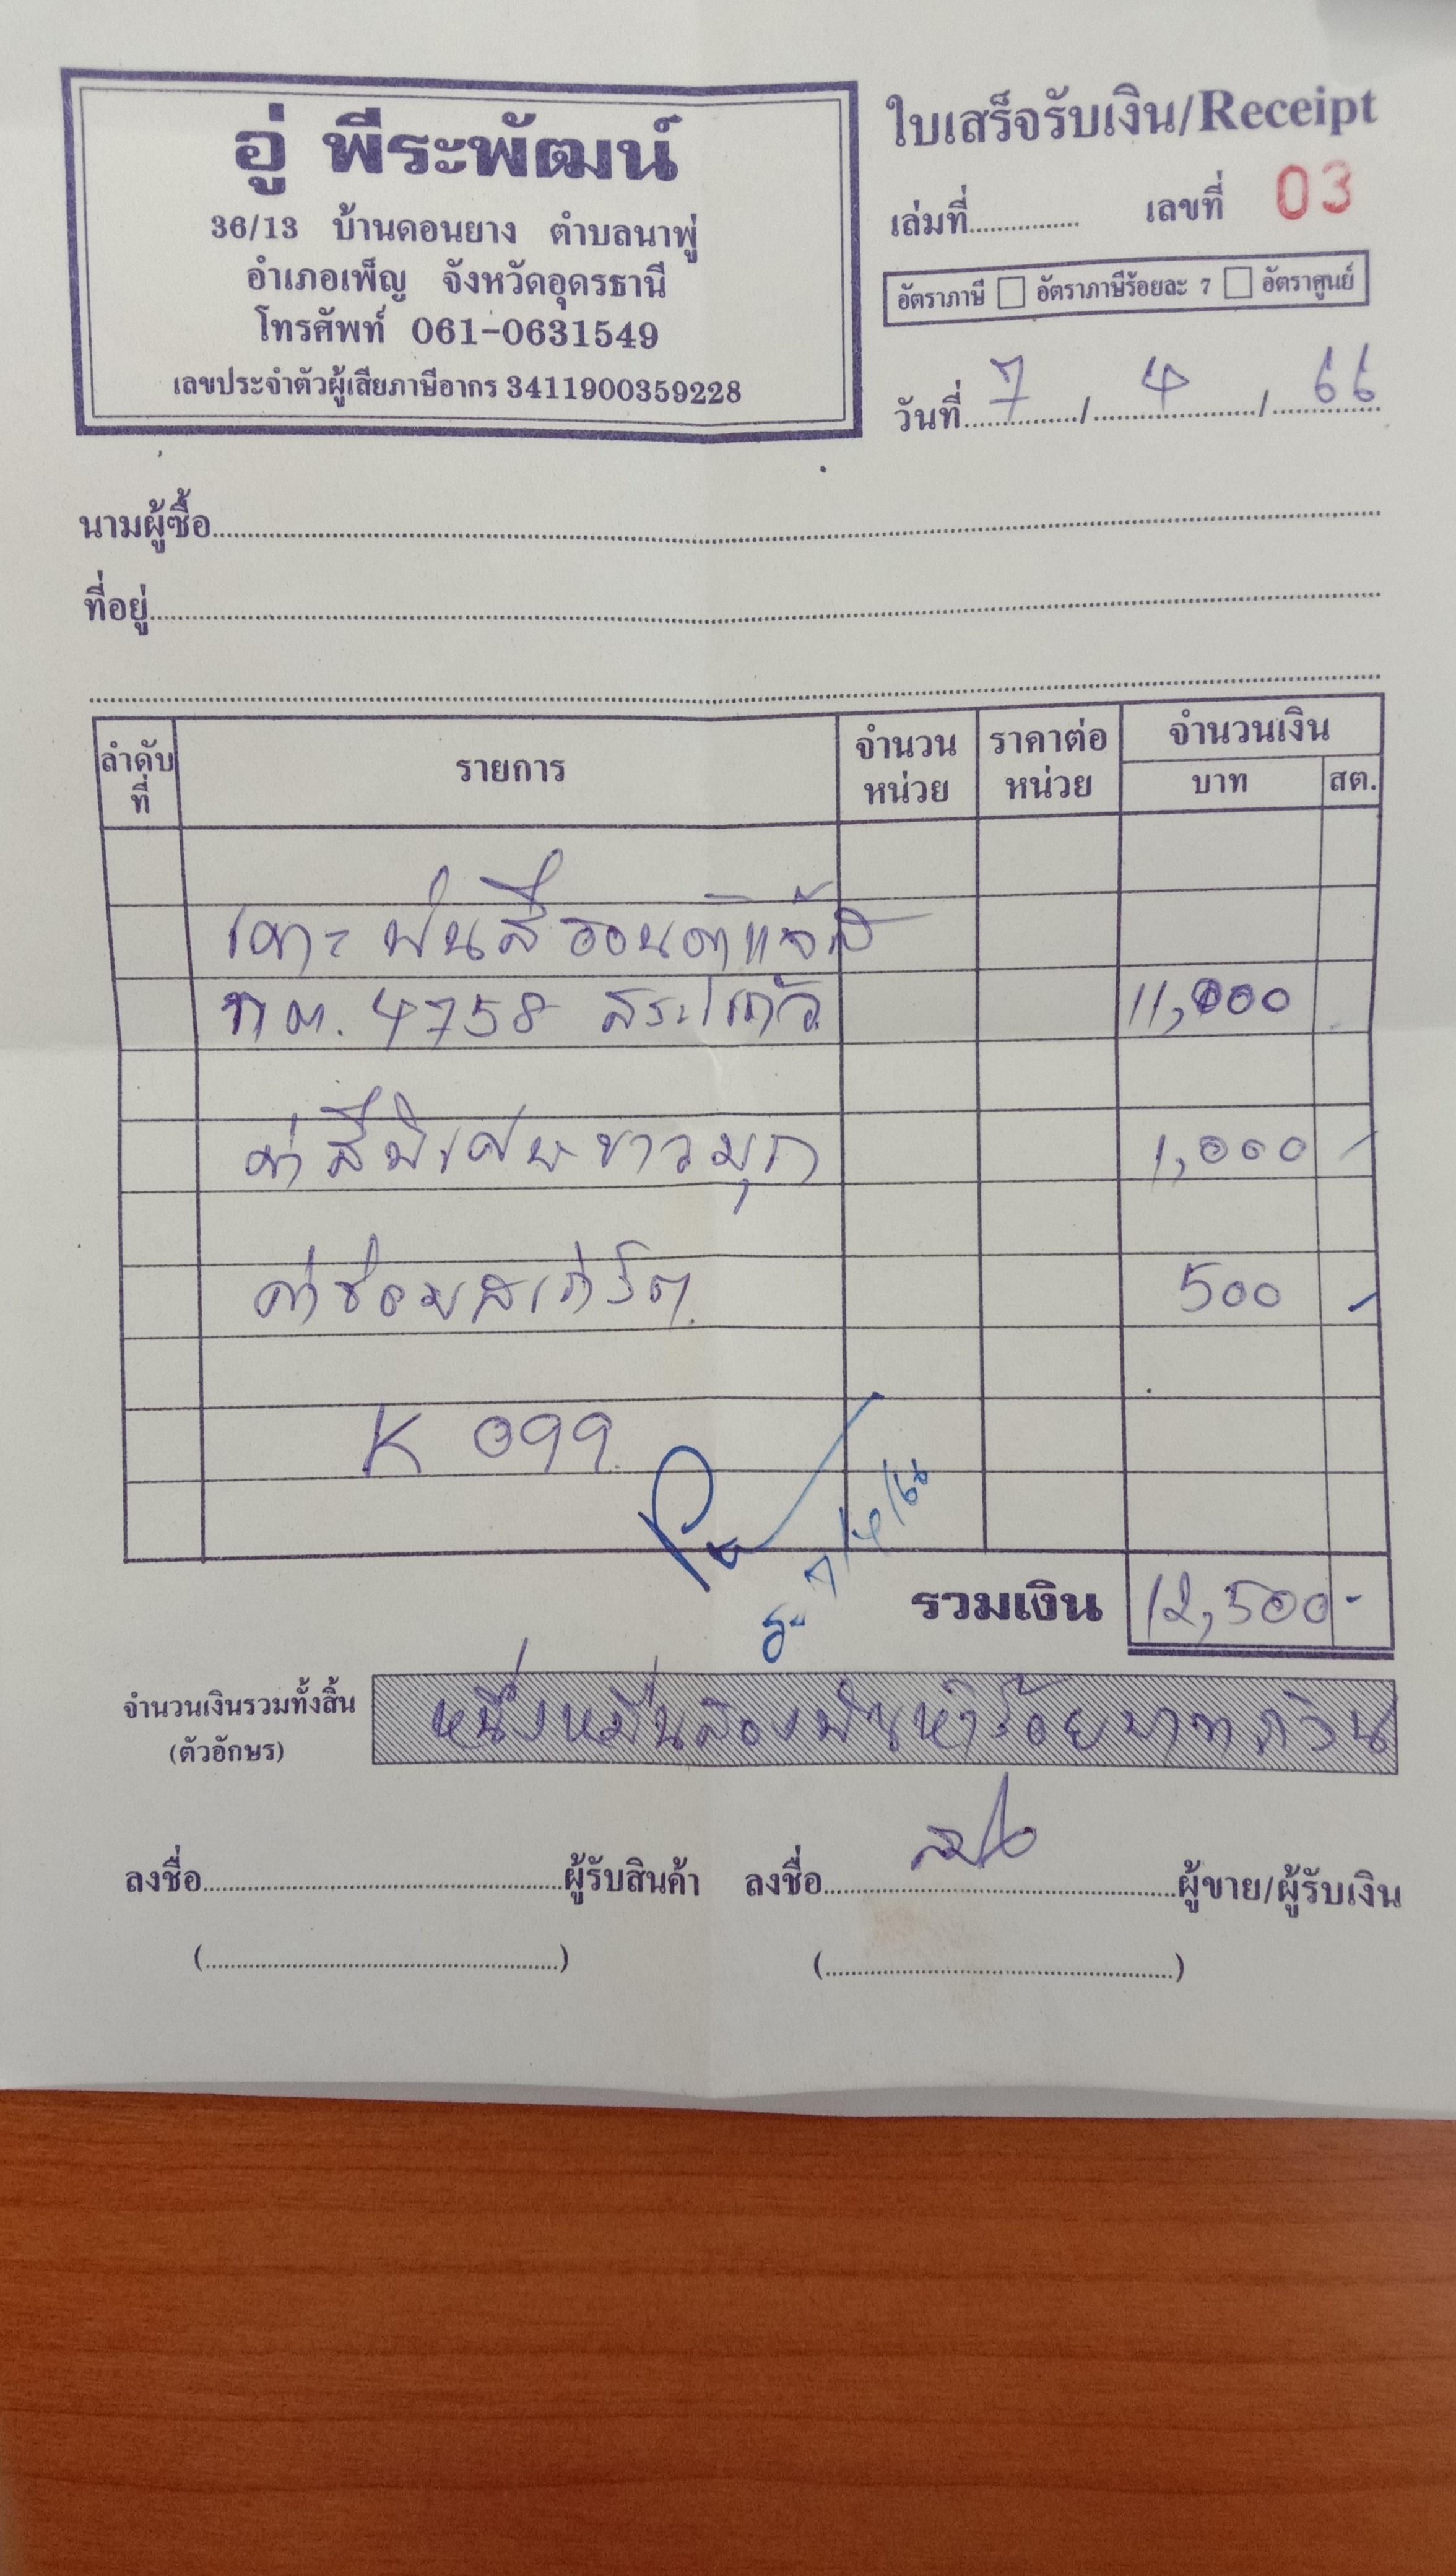 อู่ พีระพัฒน์
36/13 บ้านดอนยาง ตำบลนาพู่
อำเภอเพ็ญ จังหวัดอุดรธานี
โทรศัพท์ 061-0631549
เลขประจำตัวผู้เสียภาษีอากร 3411900359228
ใบเสร็จรับเงิน/Receipt
เล่มที่ เลขที่ 03
อัตราภาษี อัตราภาษีร้อยละ 7 อัตราศูนย์
วันที่ 7 / 4 / 66
นามผู้ซื้อ
ที่อยู่
ลำดับที่ รายการ จำนวนหน่วย ราคาต่อหน่วย จำนวนเงิน บาท สต.
เคาะ พ่นสี ฮอนด้าแจ๊ส
กต. 4758 สระแก้ว 11,000
ค่าสีพิเศษขาวมุก 1,000 -
ค่าซ่อมสเกิร์ต 500 -
K 099
7/4/66
รวมเงิน 12,500 -
จำนวนเงินรวมทั้งสิ้น
(ตัวอักษร) หนึ่งหมื่นสองพันห้าร้อยบาทถ้วน
ลงชื่อ ผู้รับสินค้า ลงชื่อ ผู้ขาย/ผู้รับเงิน